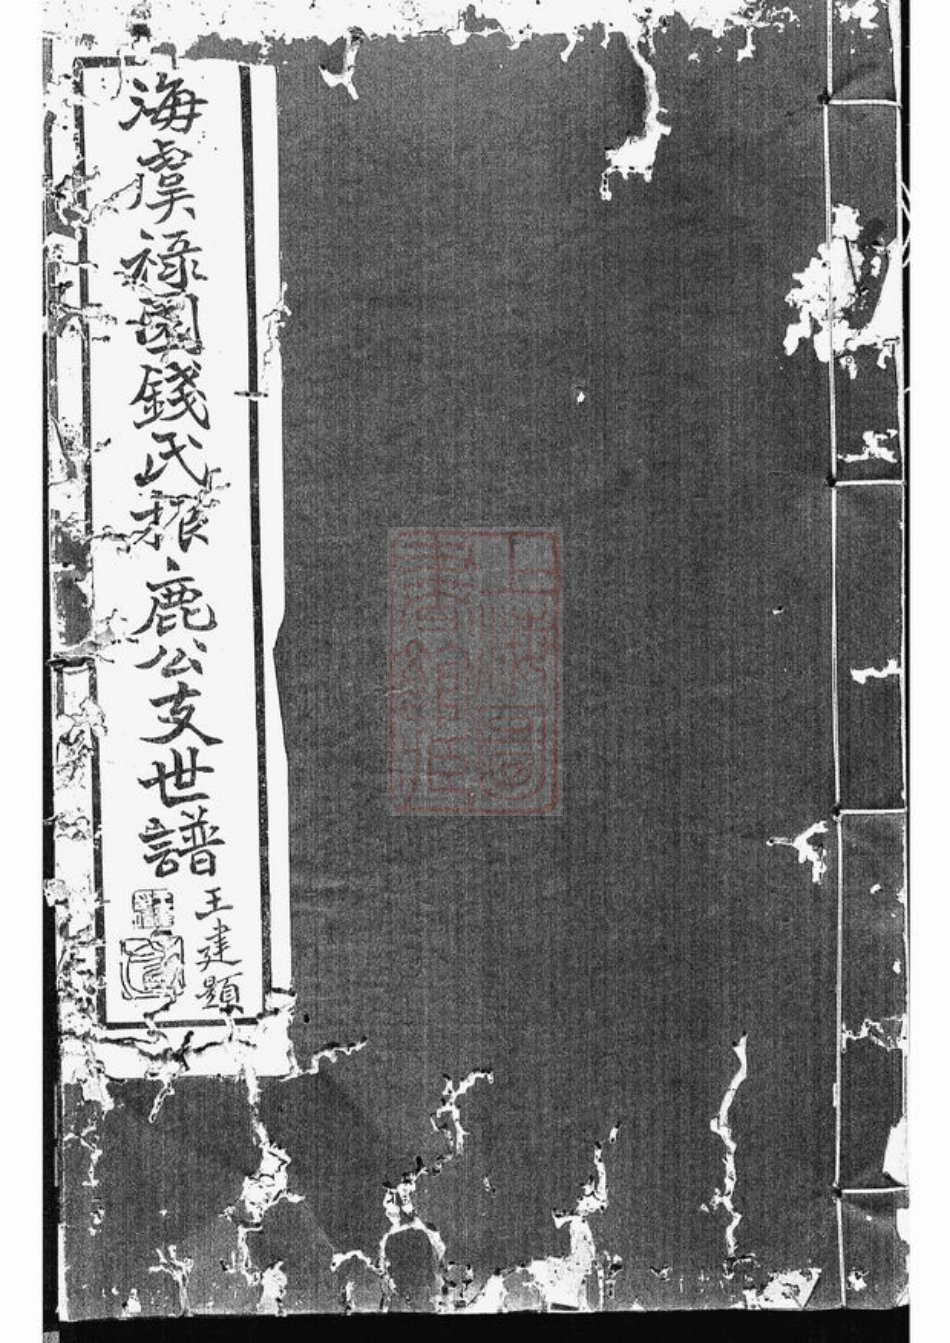 海虞祿園錢氏振鹿公支世譜
王建題
上海圖書館藏